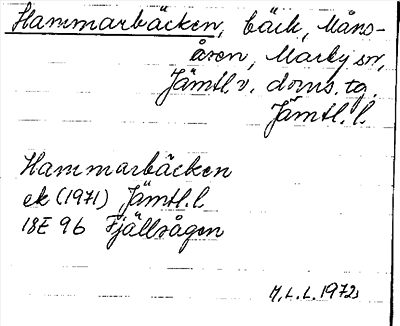 Hammarbäcken, bäck, Måns-
åsen, Marby sn,
Jämtl. v. doms. tg.
Jämtl. l.
Hammarbäcken
ek (1971) Jämtl. l.
18E 9b Fjällsågen
M. L. L. 1972